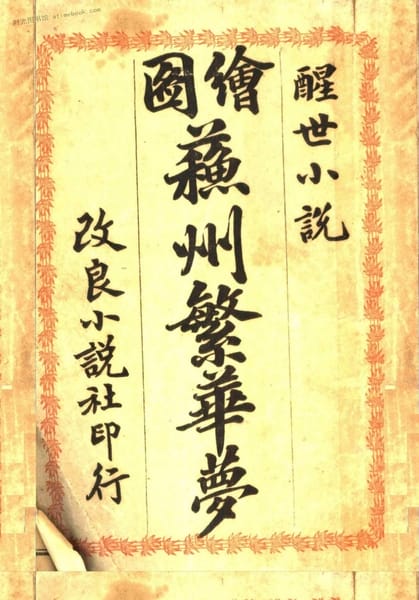 醒世小説
繪圖
蘓州繁華夢
改良小説社印行